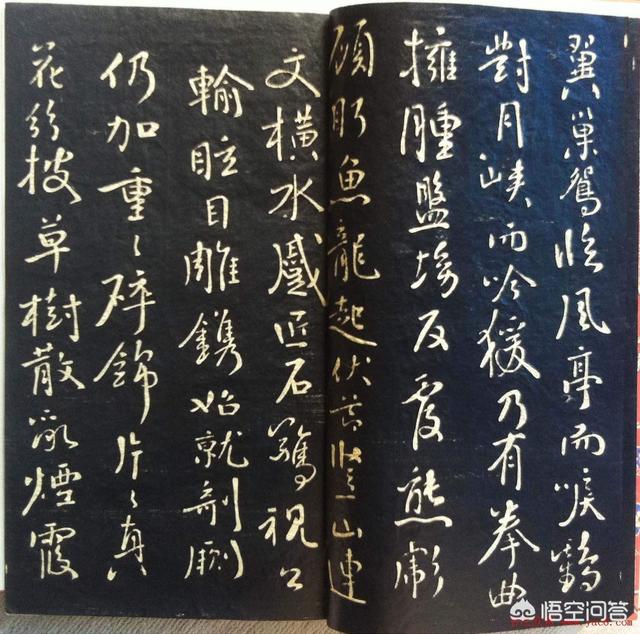 翼巢鴛臨風亭而唳鶴
對月峽而吟猨乃有拳曲
擁腫盤坳反覆熊彪
顧盼魚龍起伏節豎山連
文橫水蹙匠石驚視公
輸眩目雕鐫始就剞劂
仍加重〻碎錦片〻真
花紛披草樹散亂煙霞
悟空问答